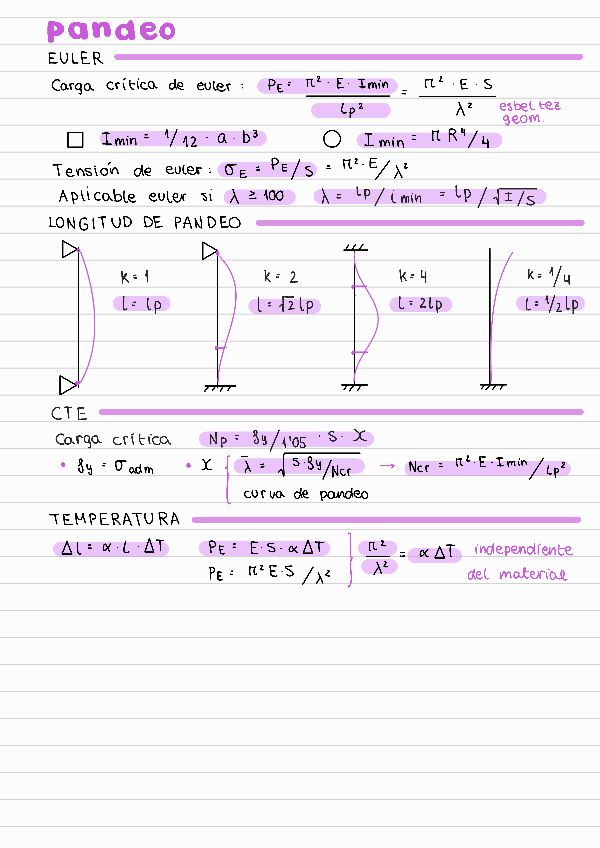 pandeo
EULER
Carga crítica de euler : PE = π² · E · Imin / lp² = π² · E · S / λ²
esbeltez
geom.
Imin = 1/12 · a · b³ Imin = π R⁴/4
Tensión de euler : σE = PE/S = π² · E/λ²
Aplicable euler si λ ≥ 100 λ = lp/imin = lp/√I/S
LONGITUD DE PANDEO
K = 1 K = 2 K = 4 K = 1/4
l = lp l = √2 lp l = 2lp l = 1/2 lp
CTE
Carga crítica Np = fy/1'05 · S · X
• fy = σadm • X { λ̄ = √S·fy/Ncr → Ncr = π²·E·Imin/lp²
curva de pandeo
TEMPERATURA
Δl = α · l · ΔT PE = E · S · α ΔT } π²/λ² = α ΔT independiente
PE = π² E · S / λ² del material